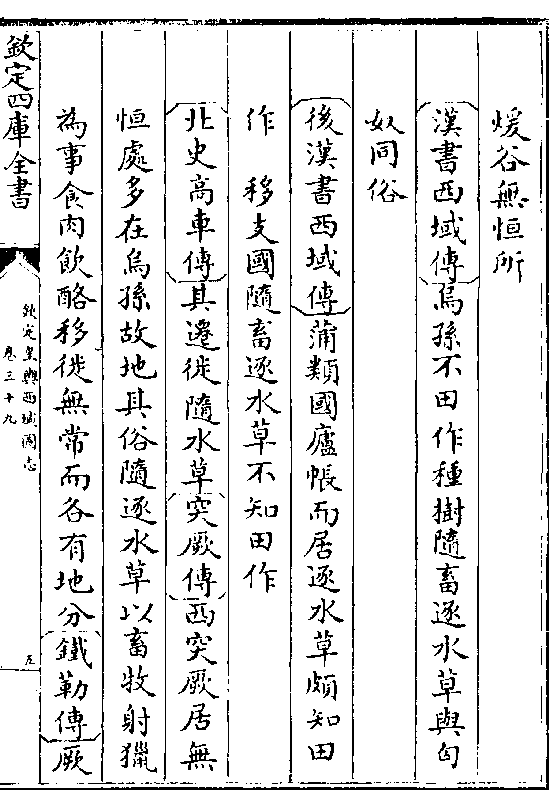 煖谷無恒所
漢書西域傳烏孫不田作種樹隨畜逐水草與匈
奴同俗
後漢書西域傳蒲類國廬帳而居逐水草頗知田
作　移支國隨畜逐水草不知田作
北史高車傳其遷徙隨水草突厥傳西突厥居無
恒處多在烏孫故地其俗隨逐水草以畜牧射獵
為事食肉飲酪移徙無常而各有地分鐵勒傳厥
欽定四庫全書
欽定皇輿西域圖志
卷三十九
五